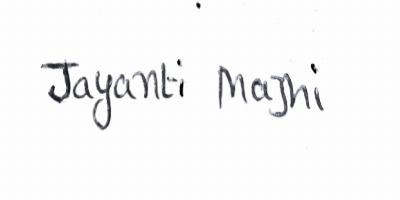 Jayanti Majhi